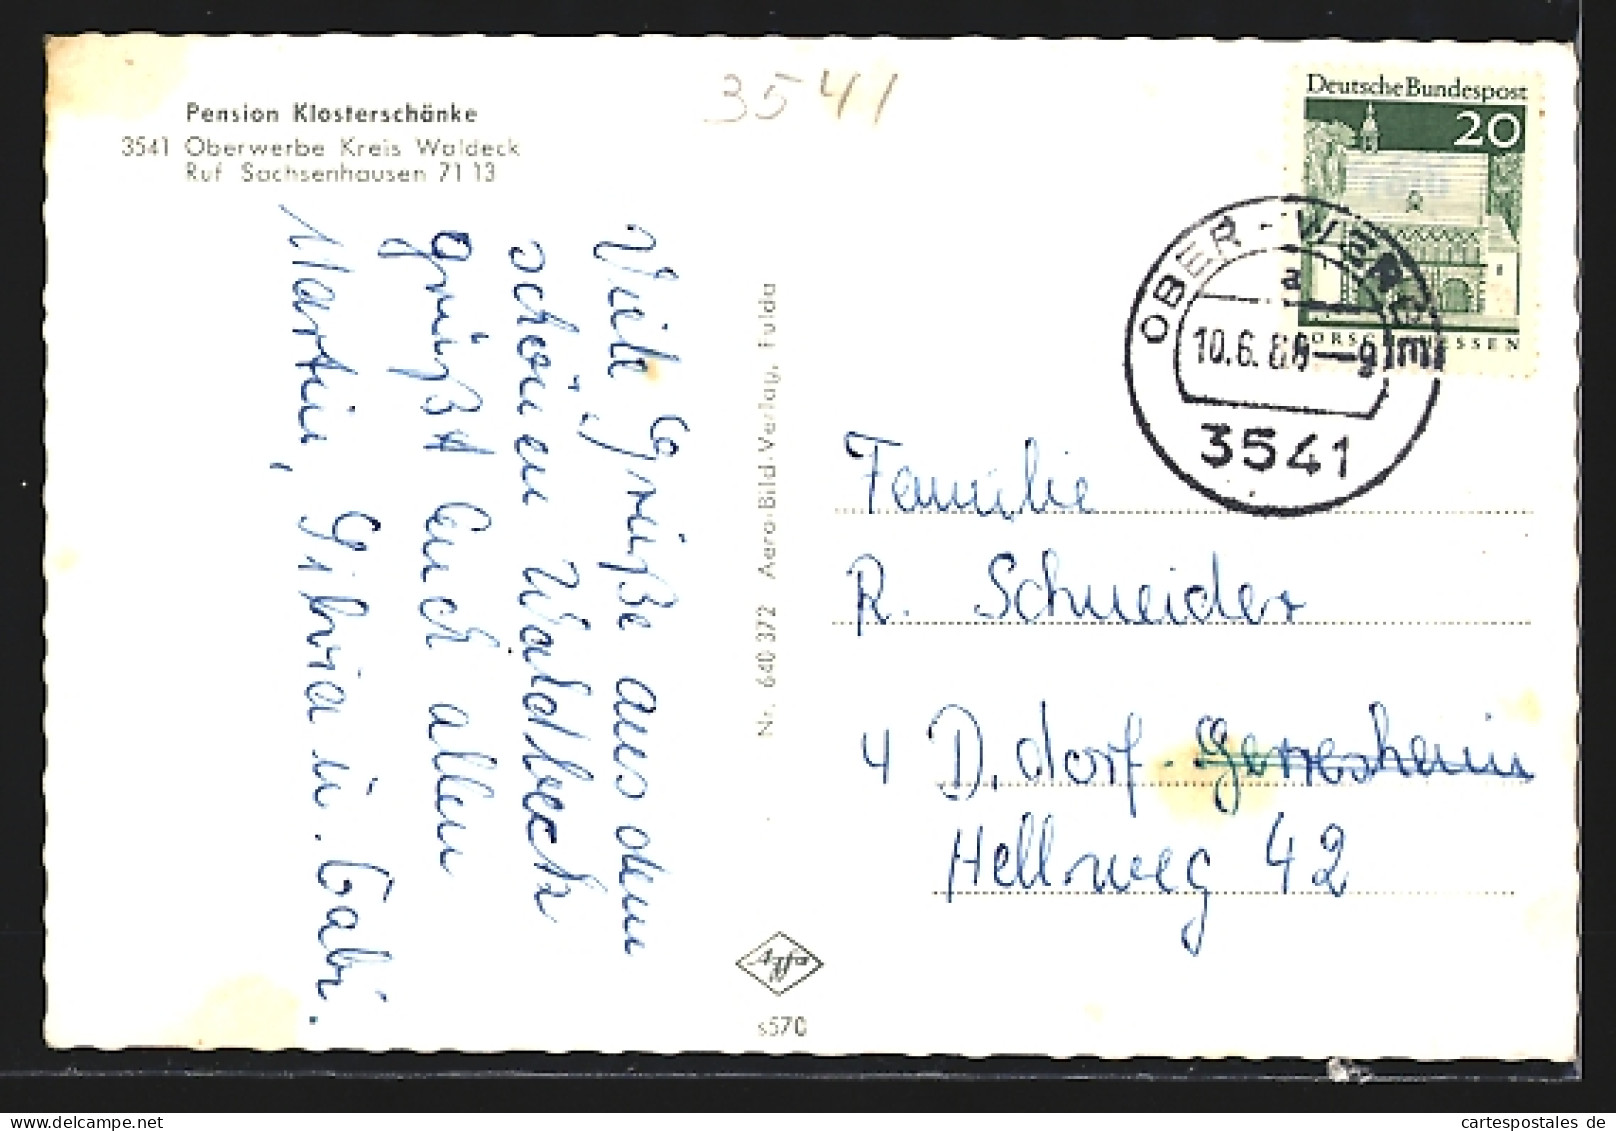 Pension Klosterschänke
3541 Oberwerbe Kreis Waldeck
Ruf Sachsenhausen 71 13
3541
Deutsche Bundespost
20
LORSCH HESSEN
OBER-WERBE
a
10.6.
3541
Viele Grüße aus dem
schönen Waldbeck
grüßt Euch allen
Martin, Silvia u. Gabi.
Nr. 640 372 Aero-Bild-Verlag, Fulda
Agfa
s570
Familie
R. Schneider
4 D.dorf-Gerresheim
Hellweg 42
cartespostales.de